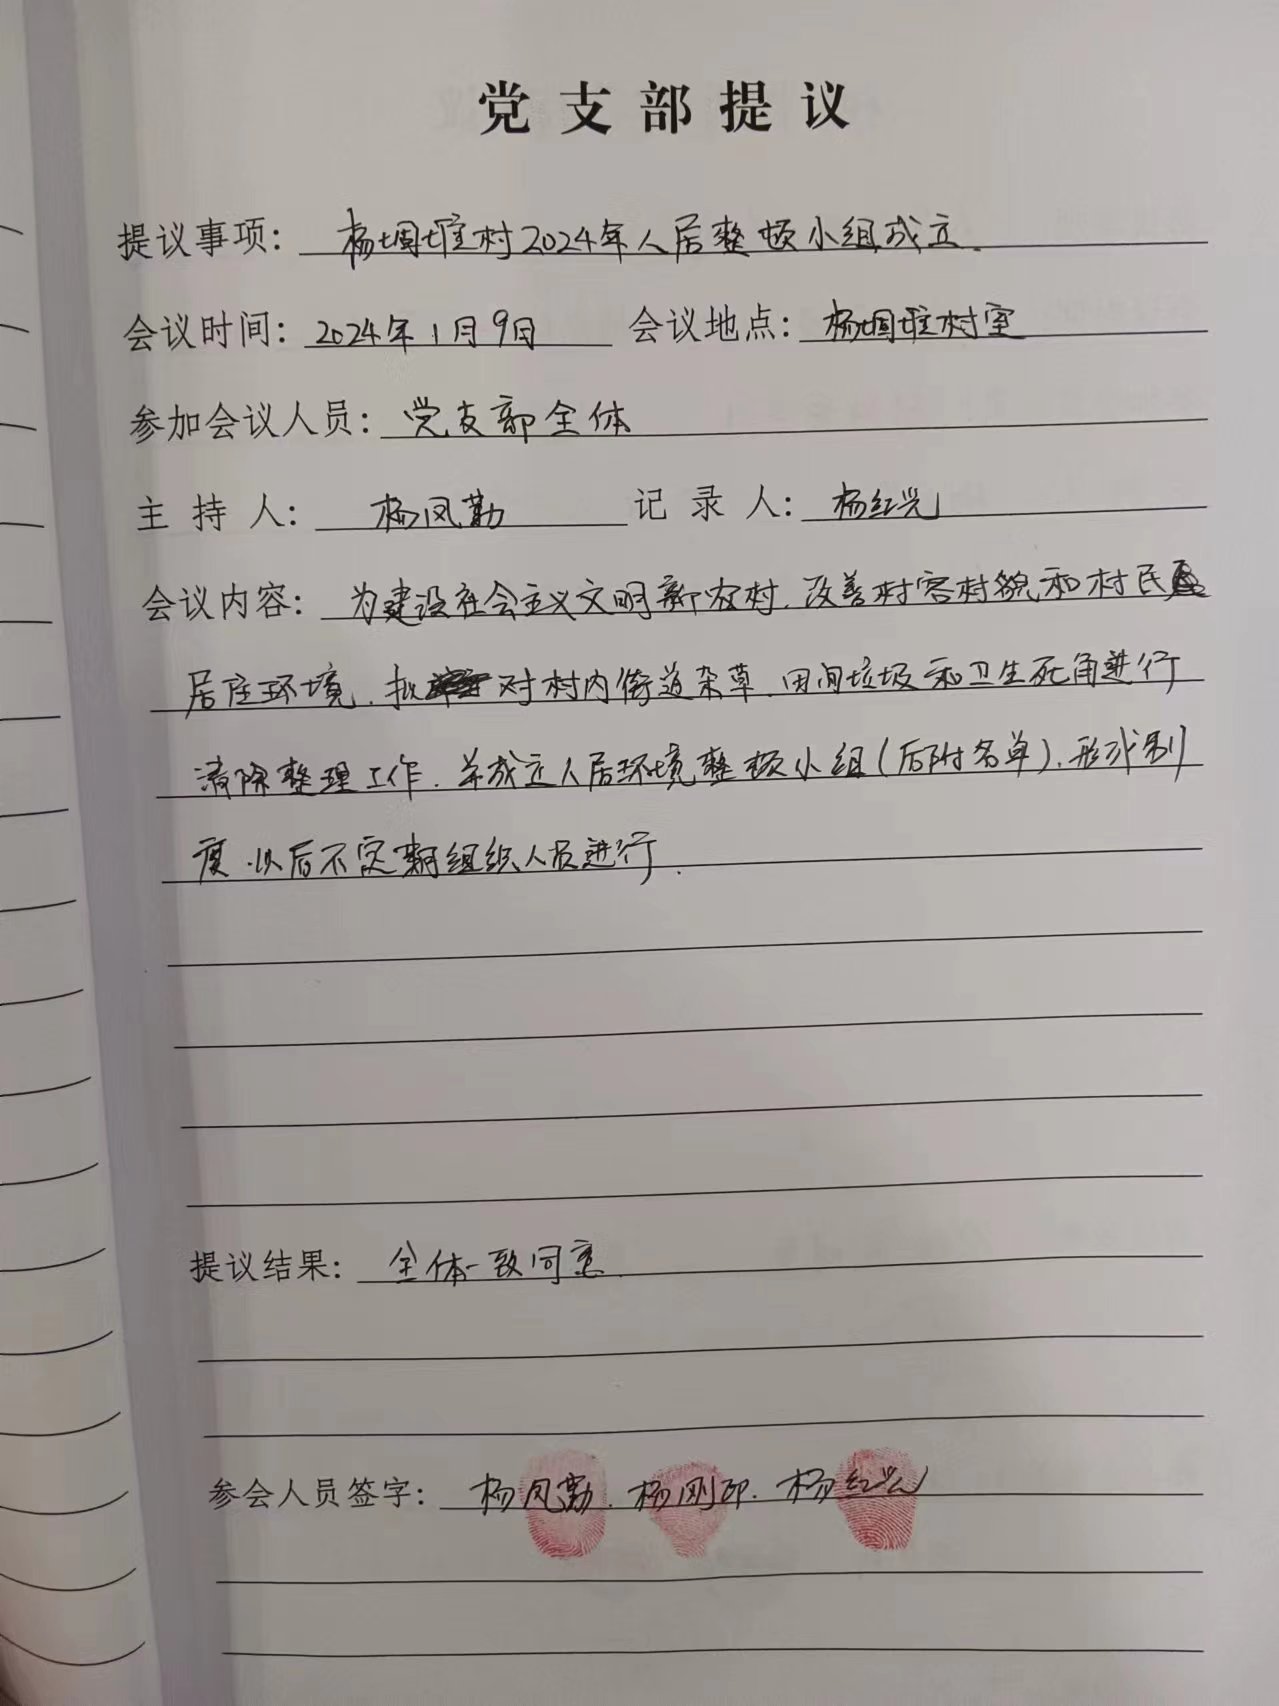 党支部提议
提议事项：杨堌堆村2024年人居整顿小组成立.
会议时间：2024年1月9日 会议地点：杨堌堆村室
参加会议人员：党支部全体
主 持 人：杨凤勤 记 录 人：杨红兴
会议内容：为建设社会主义文明新农村.改善村容村貌和村民
居住环境.拟对村内街道杂草.田间垃圾和卫生死角进行
清除整理工作.并成立人居环境整顿小组(后附名单).形成制
度.以后不定期组织人员进行.
提议结果：全体一致同意.
参会人员签字：杨凤勤.杨刚印.杨红兴